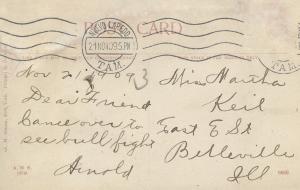 POST CARD
NUEVO LAREDO
21 NOV. 09. 5 PM
TAM.
TAM.
Nov 21 1909
3
Dear Friend
Came over to
see bull fight
Arnold
Miss Martha
Keil
East E St
Belleville
Ill